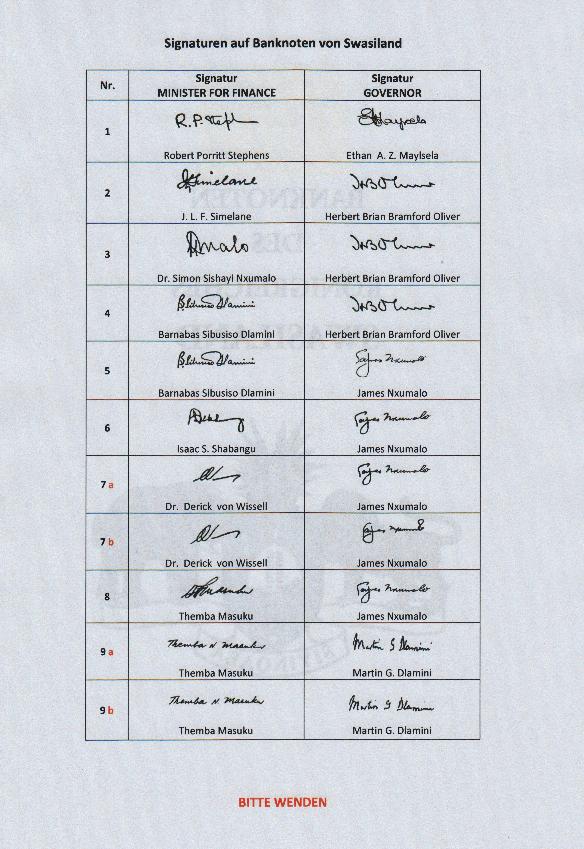 Signaturen auf Banknoten von Swasiland
Nr. Signatur MINISTER FOR FINANCE Signatur GOVERNOR
1 R.P. Steph Robert Porritt Stephens Ethan A. Z. Maylsela
2 Simelane J. L. F. Simelane HBO Herbert Brian Bramford Oliver
3 Dr. Simon Sishayl Nxumalo Herbert Brian Bramford Oliver
4 Dlamini Barnabas Sibusiso Dlamini Herbert Brian Bramford Oliver
5 Dlamini Barnabas Sibusiso Dlamini Nxumalo James Nxumalo
6 Isaac S. Shabangu Nxumalo James Nxumalo
7 a Dr. Derick von Wissell Nxumalo James Nxumalo
7 b Dr. Derick von Wissell James Nxumalo
8 Themba Masuku Nxumalo James Nxumalo
9 a Themba N Masuku Themba Masuku Martin G Dlamini Martin G. Dlamini
9 b Themba N. Masuku Themba Masuku Martin G Dlamini Martin G. Dlamini
BITTE WENDEN